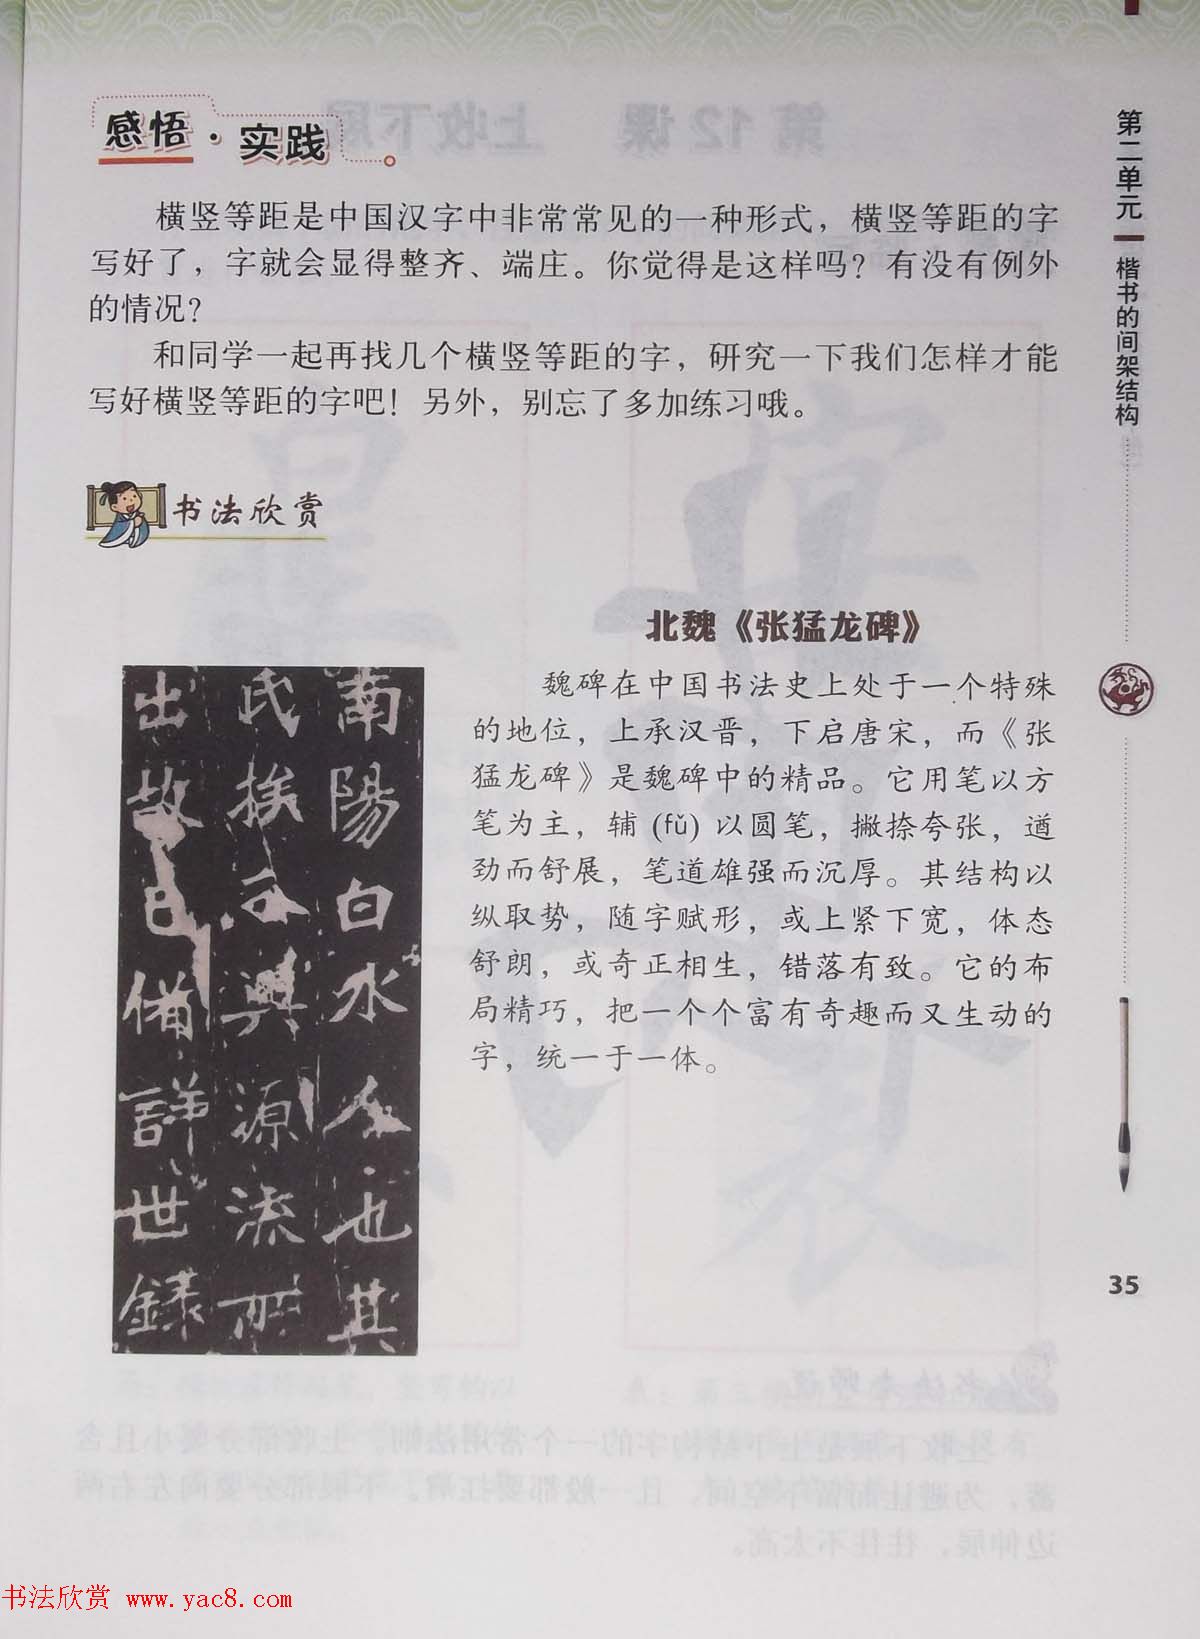 感悟·实践
横竖等距是中国汉字中非常常见的一种形式，横竖等距的字
写好了，字就会显得整齐、端庄。你觉得是这样吗？有没有例外
的情况？
和同学一起再找几个横竖等距的字，研究一下我们怎样才能
写好横竖等距的字吧！另外，别忘了多加练习哦。
书法欣赏
北魏《张猛龙碑》
魏碑在中国书法史上处于一个特殊
的地位，上承汉晋，下启唐宋，而《张
猛龙碑》是魏碑中的精品。它用笔以方
笔为主，辅(fǔ)以圆笔，撇捺夸张，遒
劲而舒展，笔道雄强而沉厚。其结构以
纵取势，随字赋形，或上紧下宽，体态
舒朗，或奇正相生，错落有致。它的布
局精巧，把一个个富有奇趣而又生动的
字，统一于一体。
南陽白水人也其
氏族云興源流所
出故已備詳世録
第二单元
楷书的间架结构
35
书法欣赏 www.yac8.com